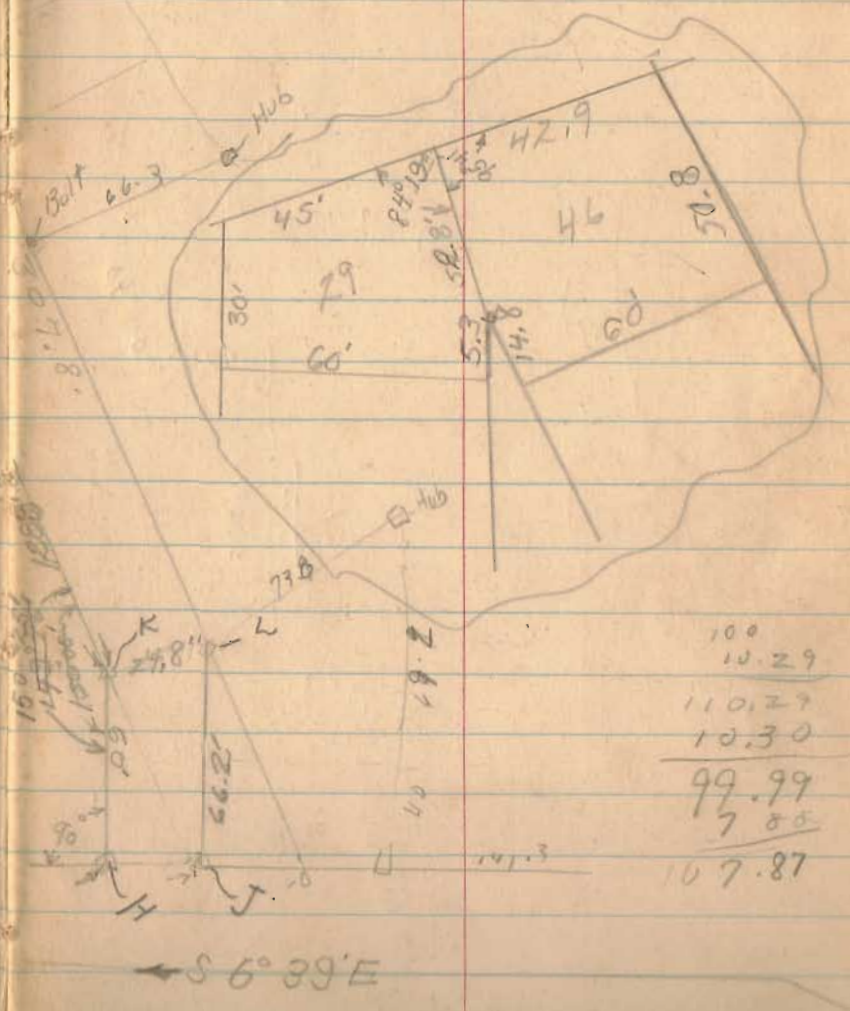 Hub
Bolt
66.3
42.9
45'
84° 19'
52.8'
50.8
46
29
30'
60'
5.3
14.8
60'
Hub
73.8
K
24.8"
L
60'
66.2'
90°
H
J
141.3
100
10.29
110.29
10.30
99.99
7 88
107.87
S 6° 39' E